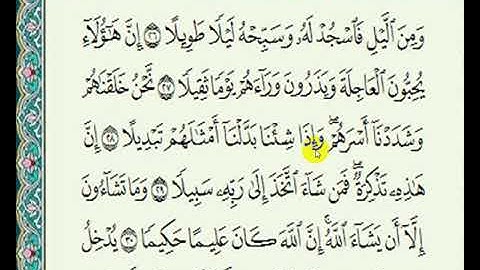 وَمِنَ ٱلَّيْلِ فَٱسْجُدْ لَهُۥ وَسَبِّحْهُ لَيْلًا طَوِيلًا ۝٢٦ إِنَّ هَٰٓؤُلَآءِ
يُحِبُّونَ ٱلْعَاجِلَةَ وَيَذَرُونَ وَرَآءَهُمْ يَوْمًا ثَقِيلًا ۝٢٧ نَّحْنُ خَلَقْنَٰهُمْ
وَشَدَدْنَآ أَسْرَهُمْ ۖ وَإِذَا شِئْنَا بَدَّلْنَآ أَمْثَٰلَهُمْ تَبْدِيلًا ۝٢٨ إِنَّ
هَٰذِهِۦ تَذْكِرَةٌ ۖ فَمَن شَآءَ ٱتَّخَذَ إِلَىٰ رَبِّهِۦ سَبِيلًا ۝٢٩ وَمَا تَشَآءُونَ
إِلَّآ أَن يَشَآءَ ٱللَّهُ ۚ إِنَّ ٱللَّهَ كَانَ عَلِيمًا حَكِيمًا ۝٣٠ يُدْخِلُ